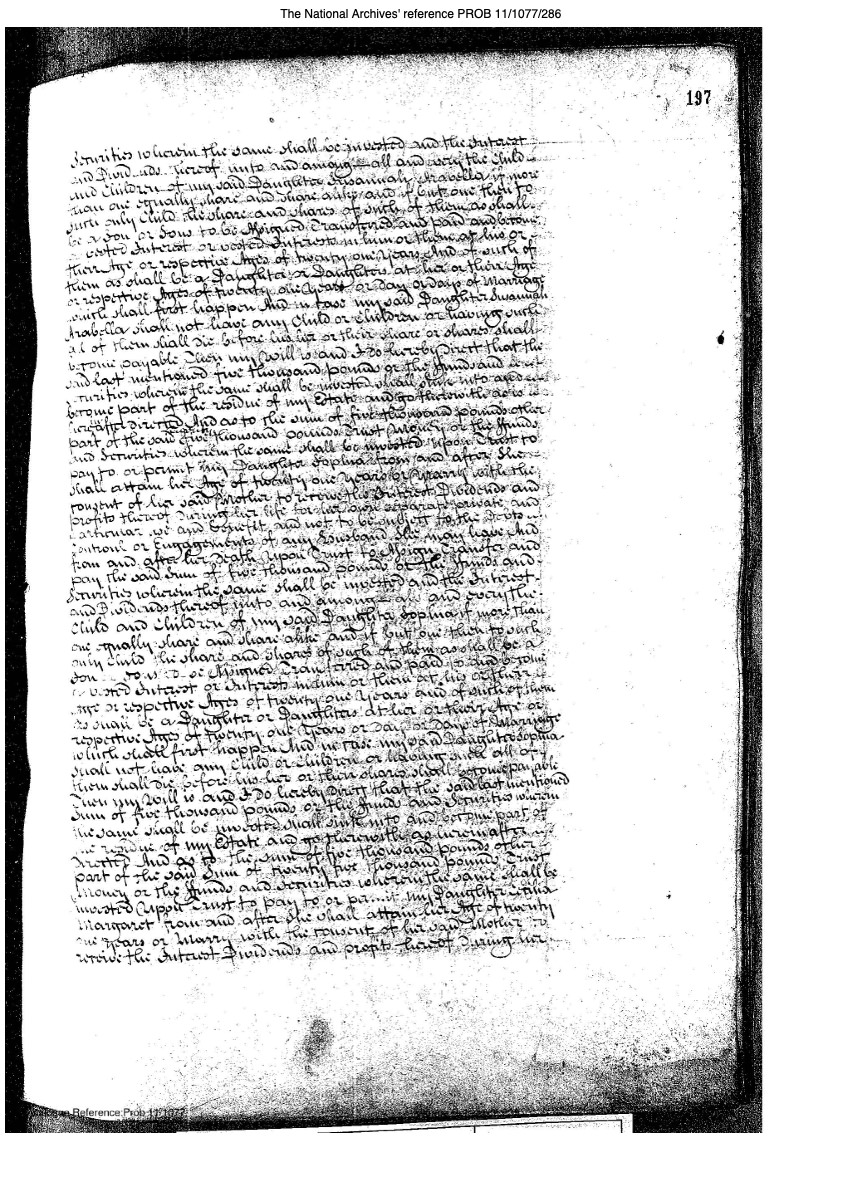 The National Archives' reference PROB 11/1077/286
197
Securities wherein the same shall be invested and the Interest
and Dividends thereof unto and among all and every the Child
and Children of my said Daughter Susannah Arabella if more
than one equally share and share alike and if but one then to
such only Child the share and shares of such of them as shall
be a Son or Sons to be Assigned Transferred and paid and become
vested Interest or vested Interests in him or them at his or
their Age or respective Ages of twenty one Years And of such of
them as shall be a Daughter or Daughters at her or their Age
or respective Ages of twenty one Years or day or days of Marriage
which shall first happen And in case my said Daughter Susannah
Arabella shall not have any Child or Children or having such
all of them shall die before his her or their share or shares shall
become payable Then my Will is and I do hereby Direct that the
said last mentioned five thousand pounds or the Funds and
Securities wherein the same shall be invested shall sink into and
become part of the residue of my Estate and go therewith as is
hereafter directed And as to the sum of five thousand pounds other
part of the said five thousand pounds Trust Money or the Funds
and Securities wherein the same shall be invested Upon Trust to
pay to or permit my Daughter Sophia from and after She
shall attain her Age of twenty one Years or Marry with the
consent of her said Mother to receive the Interest Dividends and
profits thereof During her life for her own separate private and
particular use and benefit and not to be subject to the Debts
Controul or Engagements of any Husband She may have And
from and after her Death Upon Trust to Assign Transfer and
pay the said Sum of five thousand pounds or the Funds and
Securities wherein the same shall be invested and the Interest
and Dividends thereof unto and among all and every the
Child and Children of my said Daughter Sophia if more than
one equally share and share alike and if but one then to such
only Child the share and shares of such of them as shall be a
Son or Sons to be Assigned Transferred and paid to and become
a vested Interest or Interests in him or them at his or their
Age or respective Ages of twenty one Years and of such of them
as shall be a Daughter or Daughters at her or their Age or
respective Ages of twenty one Years or Day or Days of Marriage
which shall first happen And in case my said Daughter Sophia
shall not have any Child or Children or having such all of
them shall die before his her or their shares shall become payable
Then my Will is and I do hereby Direct that the said last mentioned
Sum of five thousand pounds or the Funds and Securities wherein
the same shall be invested shall sink into and become part of
the residue of my Estate and go therewith as hereinafter is
directed And as to the Sum of five thousand pounds other
part of the said Sum of twenty five thousand pounds Trust
Money or the Funds and Securities wherein the same shall be
invested Upon Trust to pay to or permit my Daughter
Margaret from and after She shall attain her Age of twenty
one Years or Marry with the consent of her said Mother to
receive the Interest Dividends and profits thereof During her
Reference:Prob 11/1077